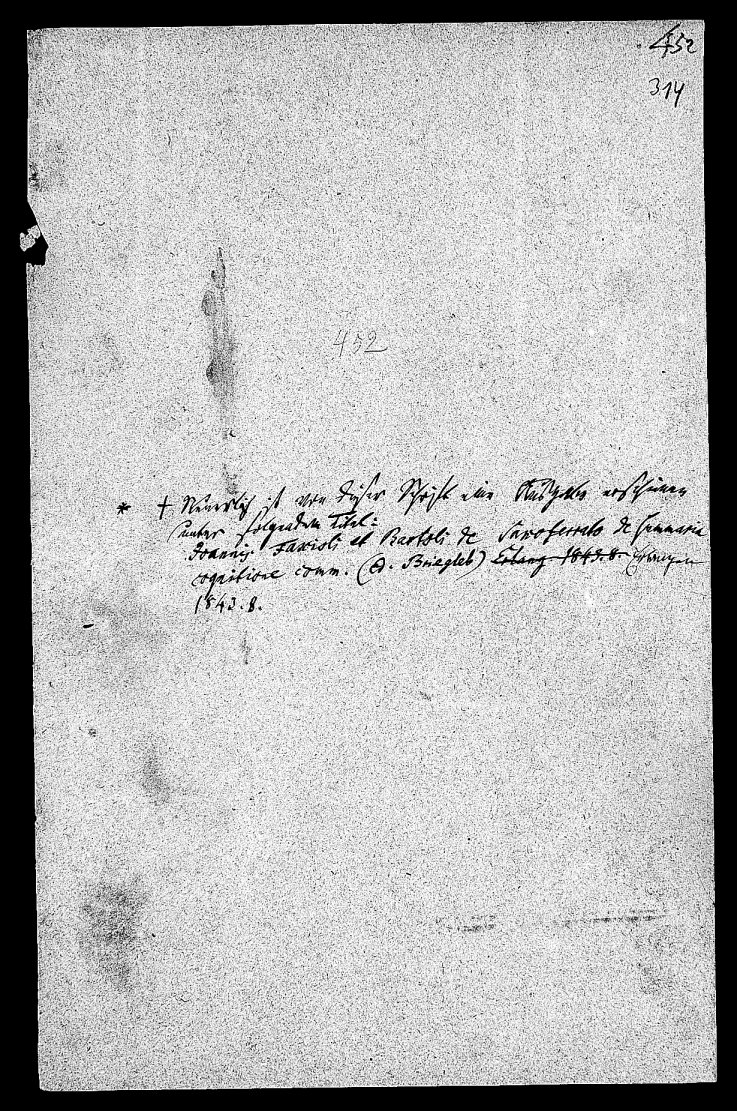 452
314
452
* + Neuerlich ist von dieser Schrift eine Ausgabe erschienen
unter folgendem Titel:
Joannis Faxioli et Bartoli de Saxoferrato de summaria
cognitione comm. (ed. Briegleb) Erlang 1843. 8. Erlangen
1843. 8.